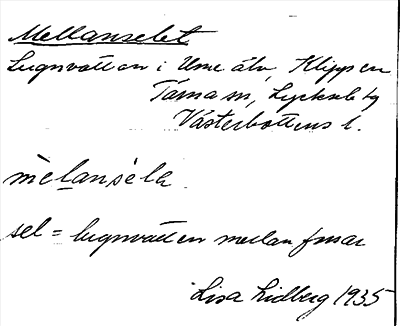 Mellanselet
Lugnvatten i Ume älv, Klippen
Tärna sn, Lycksele tg
Västerbottens l.
mèlansèla
sel = lugnvatten mellan forsar
Lisa Lidberg 1935